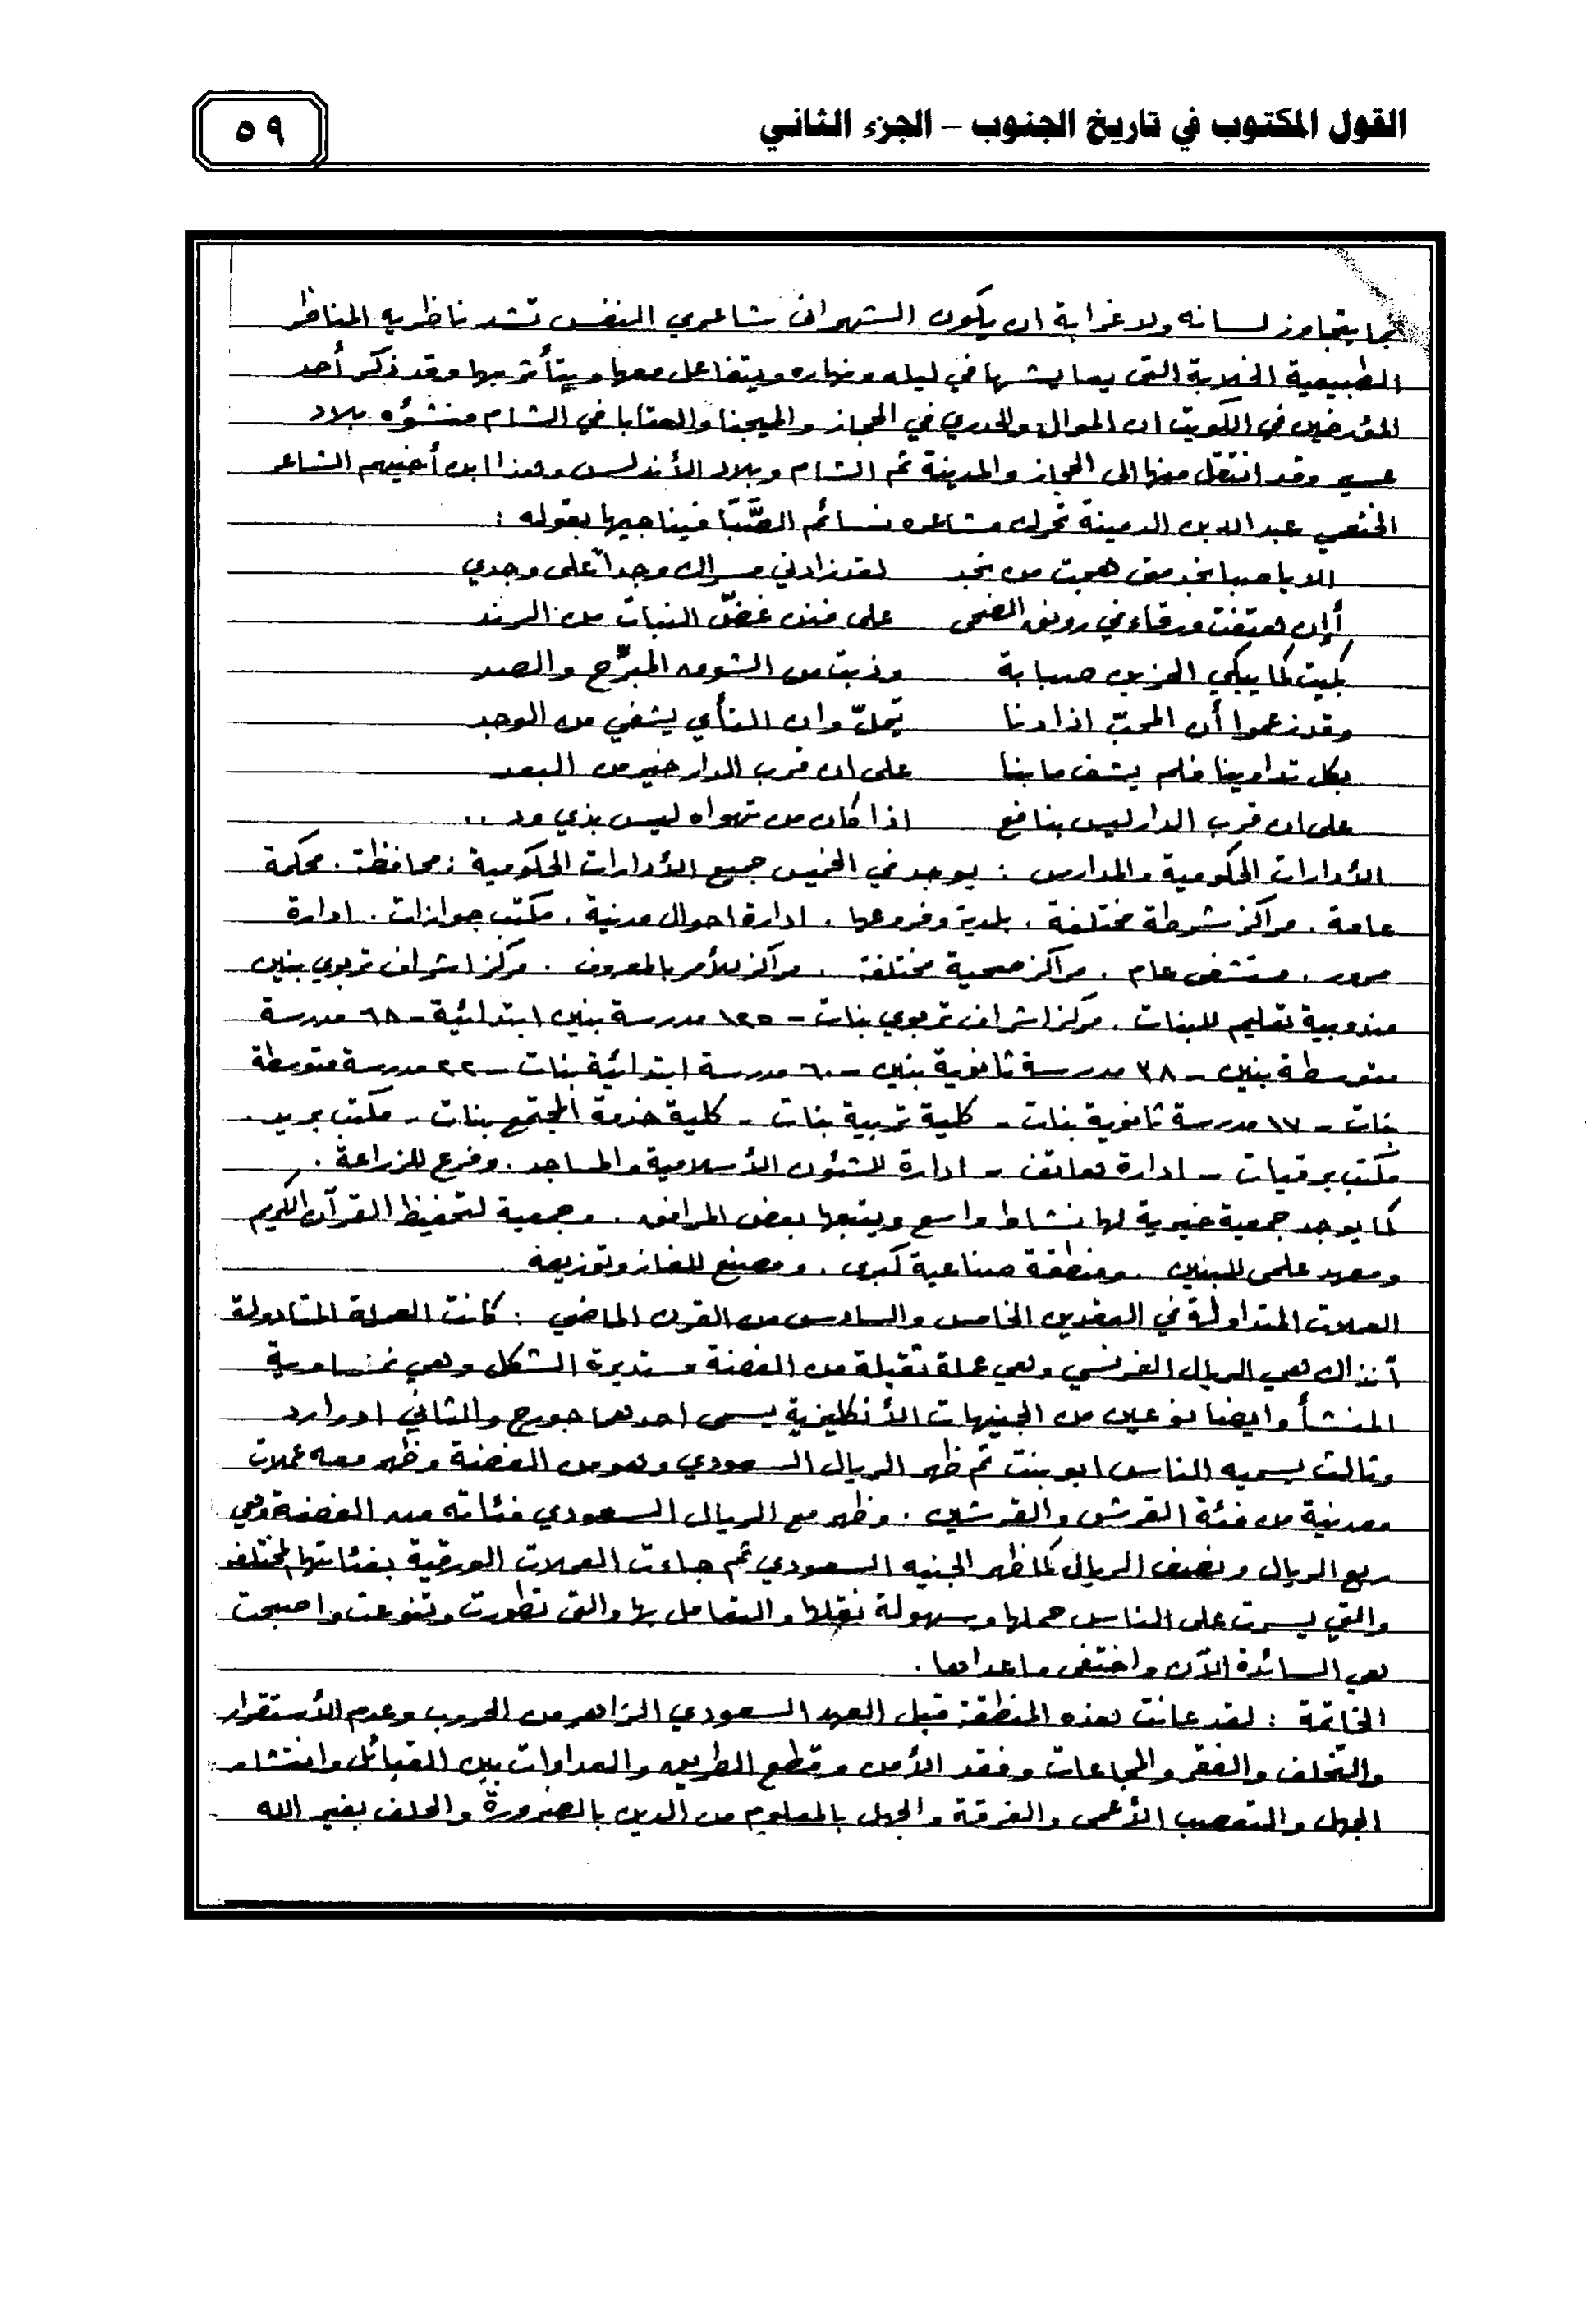 القول المكتوب في تاريخ الجنوب – الجزء الثاني
٥٩
بما يتجاوز لسانه ولا غرابة ان يكون الشهراني شاعري النفس تشد ناظريه المناظر
الطبيعية الخلابة التي يعايشها في ليله ونهاره ويتفاعل معها ويتأثر بها وقد ذكر أحد
المؤرخين في الكويت ان الموال والحدري في الحجاز والميجنا والعتابا في الشام منشؤه بلاد
عسير وقد انتقل منها الى الحجاز والمدينة ثم الشام وبلاد الأندلس وهذا ابن أخيهم الشاعر
الخثعمي عبدالله بن الدمينة تحرك مشاعره نسائم الصَّبَا فيناجيها بقوله :
الا يا صبا نجد متى هجت من نجد لقد زادني مسراك وجداً على وجدي
أإن هتفت ورقاء في رونق الضحى على فنن غضّ النبات من الرند
بكيت كما يبكي الحزين صبابة وذبت من الشوق المبرّح والصد
وقد زعموا أن المحبّ اذا دنا يملّ وان النأي يشفي من الوجد
بكل تداوينا فلم يشف ما بنا على ان قرب الدار خير من البعد
على ان قرب الدار ليس بنافع اذا كان من تهواه ليس بذي ود ..
الأدارات الحكومية والمدارس : يوجد في الخميس جميع الأدارات الحكومية : محافظة . محكمة
عامة . مراكز شرطة مختلفة . بلدية وفروعها . ادارة احوال مدنية . مكتب جوازات . ادارة
مرور . مستشفى عام . مراكز صحية مختلفة . مراكز للأمر بالمعروف . مركز اشراف تربوي بنين
مندوبية تعليم للبنات . مركز اشراف تربوي بنات – ١٢٥ مدرسة بنين ابتدائية – ٦٨ مدرسة
متوسطة بنين – ٣٨ مدرسة ثانوية بنين – ٦٠ مدرسة ابتدائية بنات – ٢٢ مدرسة متوسطة
بنات – ١٧ مدرسة ثانوية بنات – كلية تربية بنات – كلية خدمة المجتمع بنات – مكتب بريد .
مكتب برقيات – ادارة هاتف – ادارة للشئون الأسلامية والمساجد . وفرع للزراعة .
كما يوجد جمعية خيرية لها نشاط واسع ويتبعها بعض المرافق . وجمعية لتحفيظ القرآن الكريم
ومعهد علمي للبنين . ومنطقة صناعية كبرى . ومصنع للغاز وتوزيعه
العملات المتداولة في العقدين الخامس والسادس من القرن الماضي : كانت العملة المتداولة
آنذاك هي الريال الفرنسي وهي عملة ثقيلة من الفضة مستديرة الشكل وهي نمساوية
المنشأ وايضا نوعين من الجنيهات الأنكليزية يسمى احدهما جورج والثاني ادوارد
وثالث يسميه الناس ابو بنت ثم ظهر الريال السعودي وهو من الفضة وظهر معه عملات
معدنية من فئة القرش والقرشين . وظهر مع الريال السعودي فئاته من الفضة وهي
ربع الريال ونصف الريال كما ظهر الجنيه السعودي ثم جاءت العملات الورقية بفئاتها المختلفة
والتي يسرت على الناس حملها وسهولة نقلها والتعامل بها والتي تطورت وتنوعت واصبحت
هي السائدة الآن واختفى ما عداها .
الخاتمة : لقد عانت هذه المنطقة قبل العهد السعودي الزاهر من الحروب وعدم الأستقرار
والتخلف والفقر والمجاعات وفقد الأمن وقطع الطريق والعداوات بين القبائل وانتشار
الجهل والتعصب الأعمى والفرقة والجهل بالمعلوم من الدين بالضرورة والحلف بغير الله